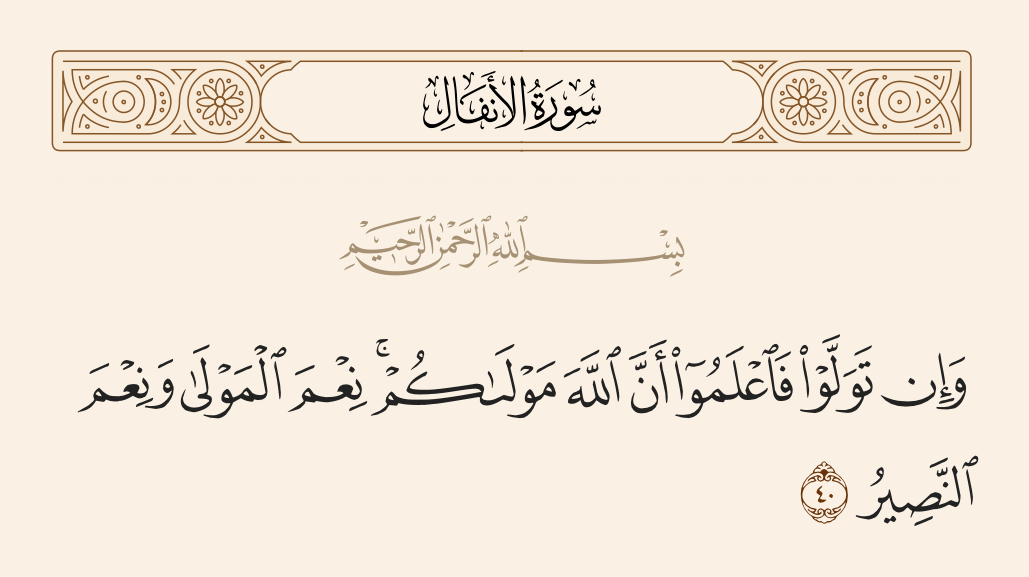 سُورَةُ الأَنفَالِ
بِسْمِ ٱللَّهِ ٱلرَّحْمَٰنِ ٱلرَّحِيمِ
وَإِن تَوَلَّوْا۟ فَٱعْلَمُوٓا۟ أَنَّ ٱللَّهَ مَوْلَىٰكُمْ ۚ نِعْمَ ٱلْمَوْلَىٰ وَنِعْمَ
ٱلنَّصِيرُ ٤٠